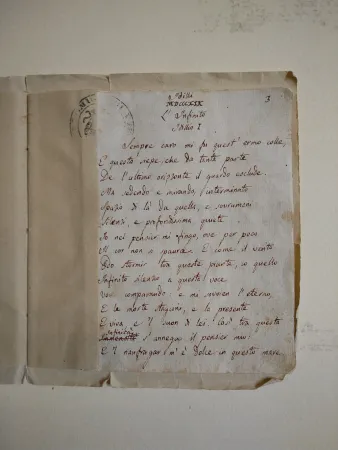 Idilli
MDCCCXIX
3
L'Infinito
Idilio I
Sempre caro mi fu quest'ermo colle,
E questa siepe, che da tanta parte
De l'ultimo orizzonte il guardo esclude.
Ma sedendo e mirando, l'interminato
Spazio di là da quella, e sovrumani
Silenzi, e profondissima quiete
Io nel pensier mi fingo, ove per poco
Il cor non si spaura. E come il vento
Odo stormir tra queste piante, io quello
Infinito silenzio a questa voce
Vo comparando: e mi sovvien l'eterno,
E le morte stagioni, e la presente
E viva, e 'l suon di lei. Così tra questa
Infinità
Immensità s'annega il pensier mio:
E 'l naufragar m'è dolce in questo mare.